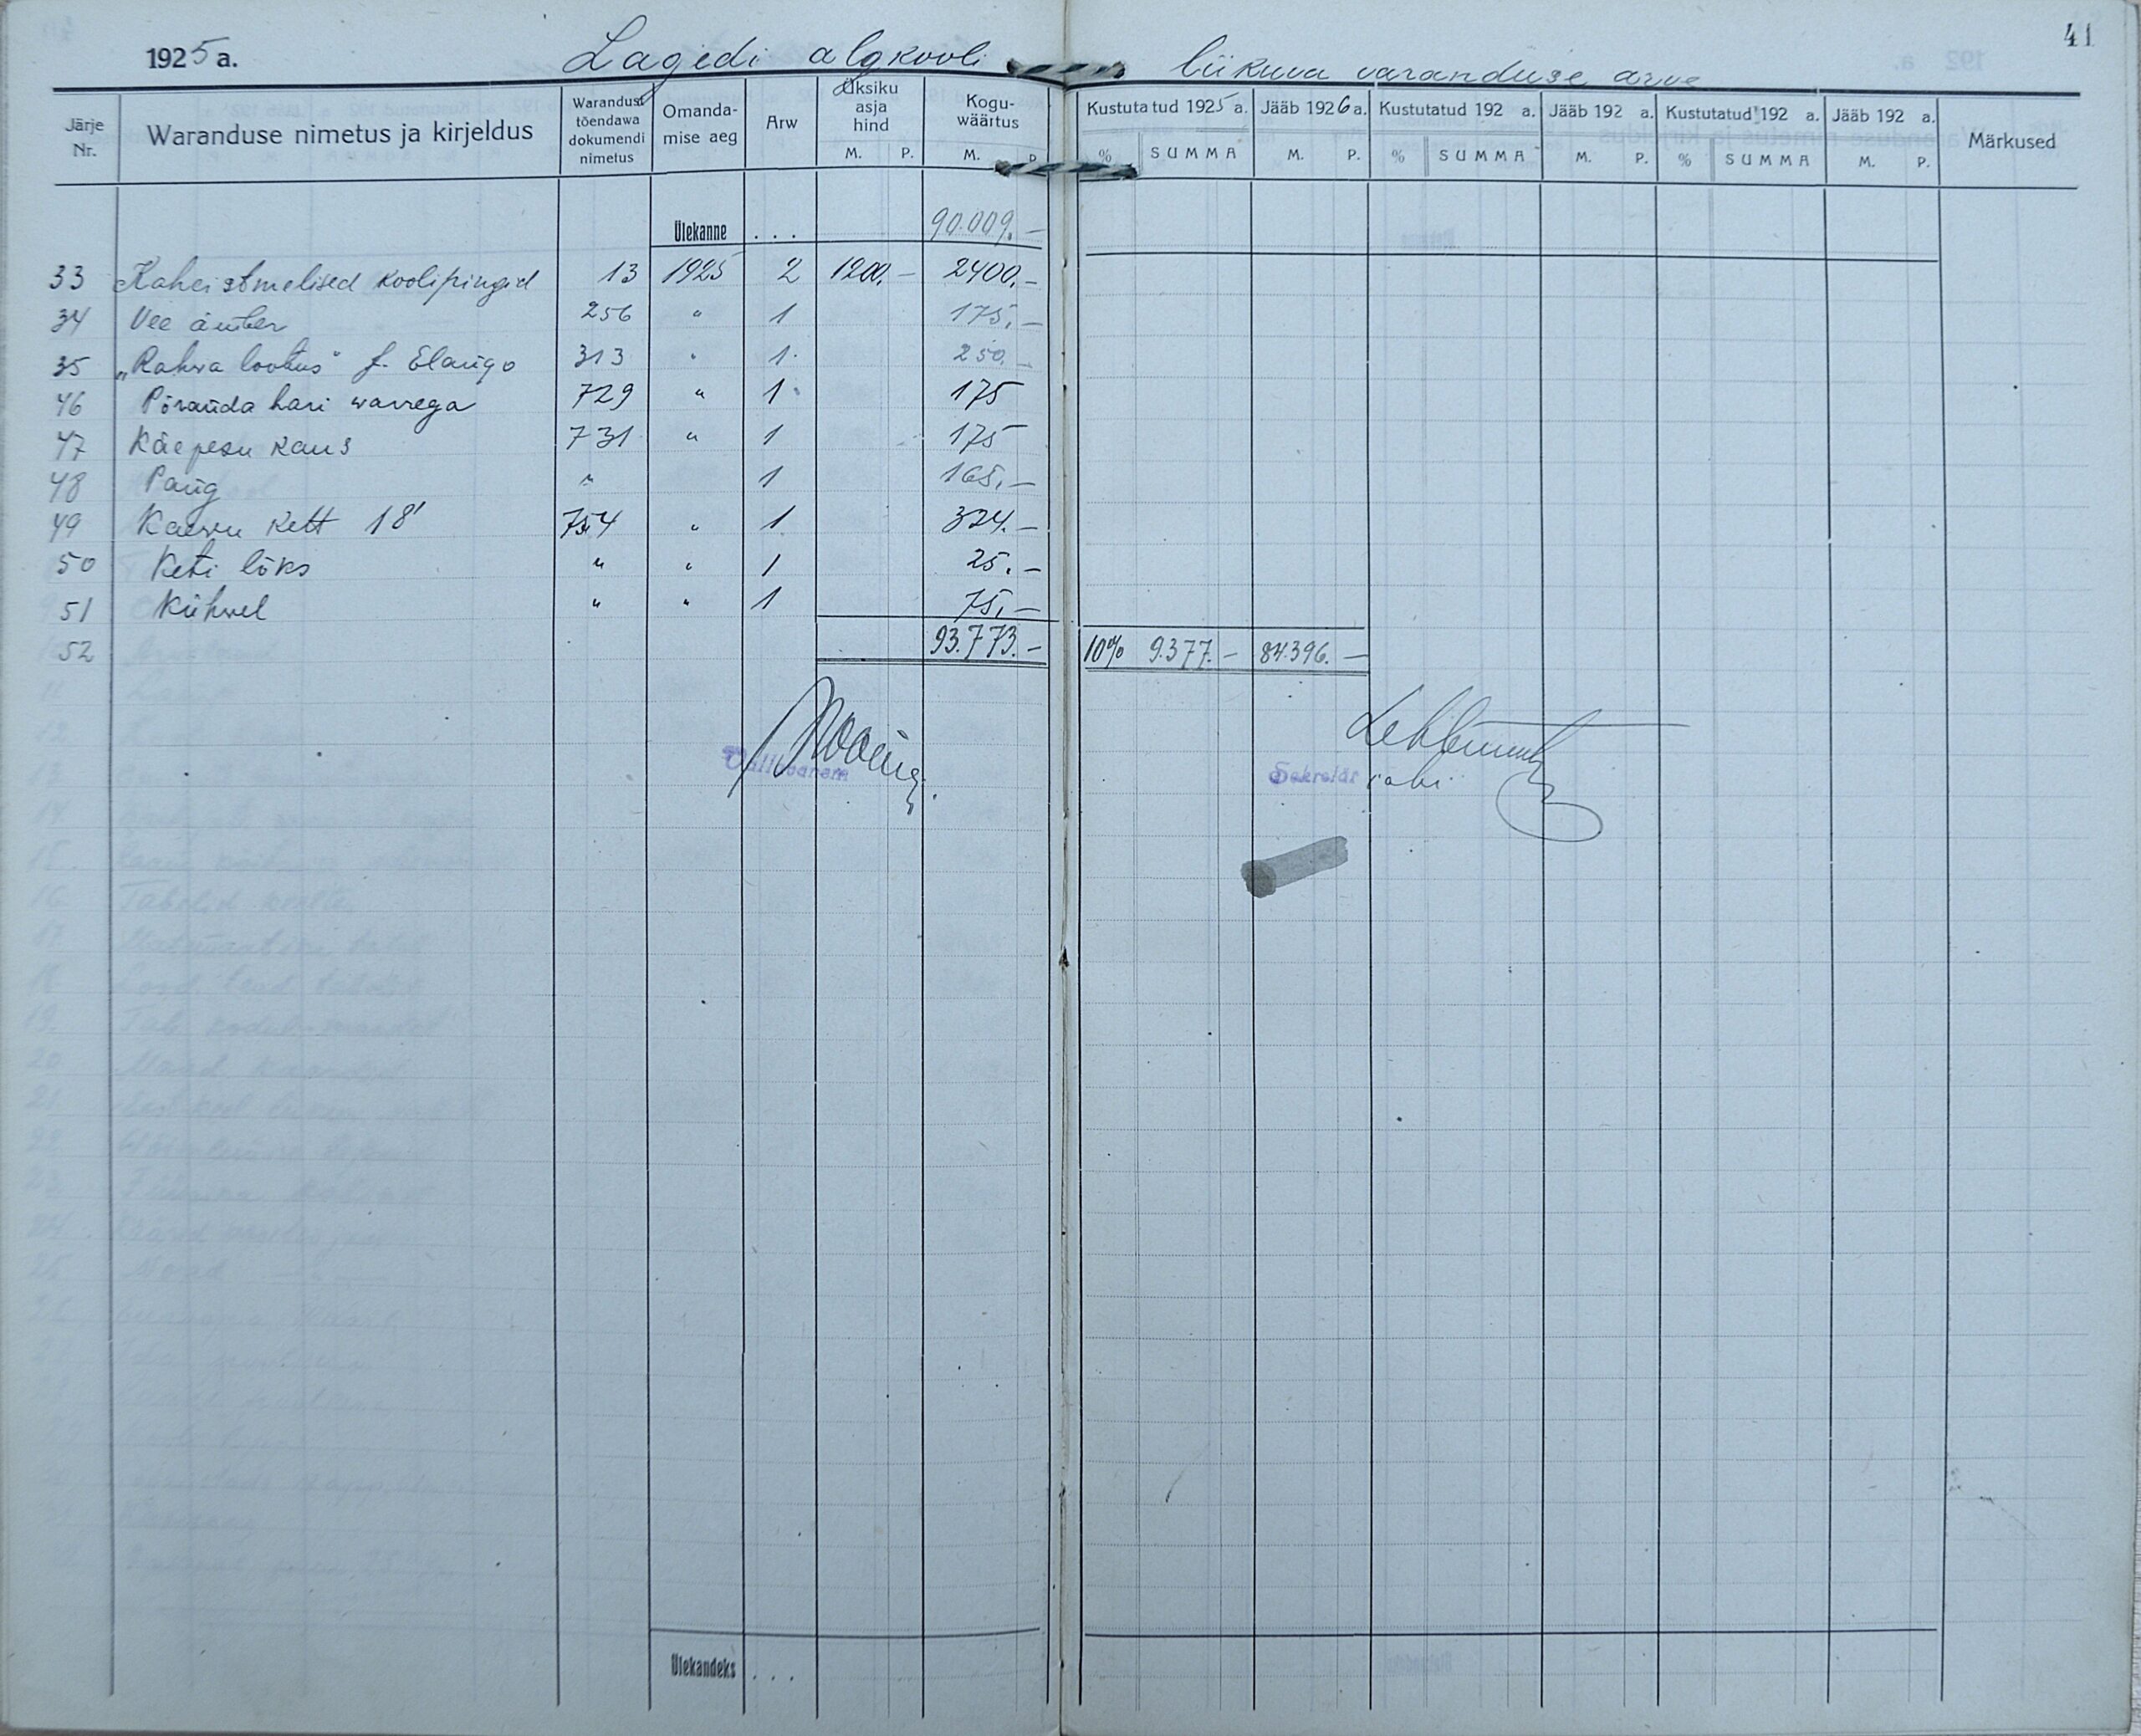 41
1925 a. Lagedi algkooli liikuva varanduse arve
Järje Nr. Waranduse nimetus ja kirjeldus Warandust tõendawa dokumendi nimetus Omandamise aeg Arw Üksiku asja hind M. P. Koguwäärtus M. P. Kustutatud 1925 a. % SUMMA Jääb 1926 a. M. P. Kustutatud 192 a. % SUMMA Jääb 192 a. M. P. Kustutatud 192 a. % SUMMA Jääb 192 a. M. P. Märkused
Ülekanne . . . 90.009.–
33 Kaheistmelised koolipingid 13 1925 2 1200.– 2400.–
34 Vee ämber 256 " 1 175.–
35 „Rahva lootus" J. Elango 313 " 1. 250.–
46 Põranda hari warrega 729 " 1 175
47 Käepesu kaus 731 " 1 175
48 Pang " 1 165.–
49 Kaevu kett 18' 754 " 1 324.–
50 Keti lüks " " 1 25.–
51 Kühvel " " 1 75.–
52 93.773.– 10% 9.377.– 84.396.–
Vallavanem
Sekretär abi
Ülekandeks . . .